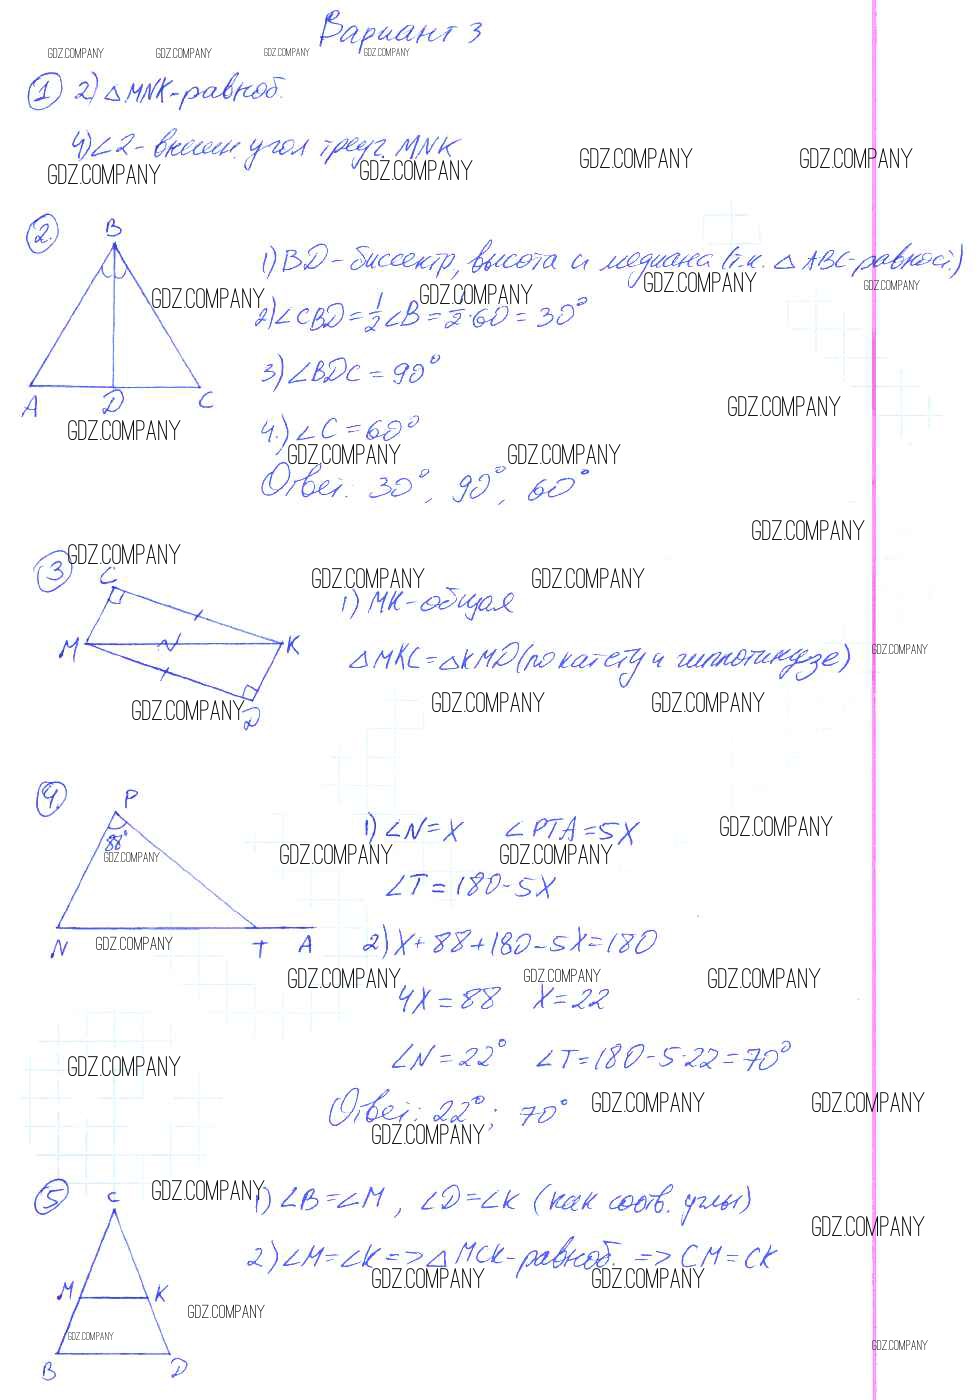 Вариант 3
GDZ.COMPANY GDZ.COMPANY GDZ.COMPANY GDZ.COMPANY
1 2) △MNK-равноб.
4) ∠2 - внешн. угол треуг. MNK
GDZ.COMPANY GDZ.COMPANY GDZ.COMPANY GDZ.COMPANY
2. B
1) BD - биссектр, высота и медиана (т.к. △ ABC-равност.)
GDZ.COMPANY GDZ.COMPANY GDZ.COMPANY GDZ.COMPANY
2) ∠CBD = 1/2 ∠B = 1/2 · 60 = 30°
3) ∠BDC = 90°
A D C
GDZ.COMPANY
4.) ∠C = 60°
GDZ.COMPANY GDZ.COMPANY GDZ.COMPANY
Ответ: 30°, 90°, 60°
GDZ.COMPANY
GDZ.COMPANY
3 C
GDZ.COMPANY GDZ.COMPANY
1) MK - общая
M K
△MKC = △KMD (по катету и гиппотинузе)
GDZ.COMPANY
GDZ.COMPANY GDZ.COMPANY GDZ.COMPANY
D
4. P
1) ∠N = x ∠PTA = 5x
GDZ.COMPANY
88°
GDZ.COMPANY GDZ.COMPANY GDZ.COMPANY
∠T = 180 - 5x
N T A
GDZ.COMPANY
2) x + 88 + 180 - 5x = 180
GDZ.COMPANY GDZ.COMPANY GDZ.COMPANY
4x = 88 x = 22
∠N = 22° ∠T = 180 - 5·22 = 70°
GDZ.COMPANY
Ответ: 22°; 70°
GDZ.COMPANY GDZ.COMPANY
GDZ.COMPANY
5 C
GDZ.COMPANY
1) ∠B = ∠M, ∠D = ∠K (как соотв. углы)
GDZ.COMPANY
2) ∠M = ∠K => △ MCK-равноб. => CM = CK
GDZ.COMPANY GDZ.COMPANY
M K
GDZ.COMPANY
GDZ.COMPANY GDZ.COMPANY
B D